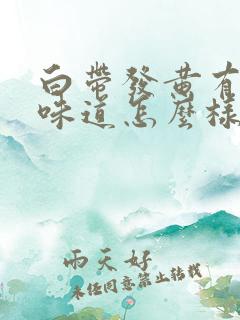 白帶發黄有
味道怎麼樣
雨天好
未经同意禁止转载